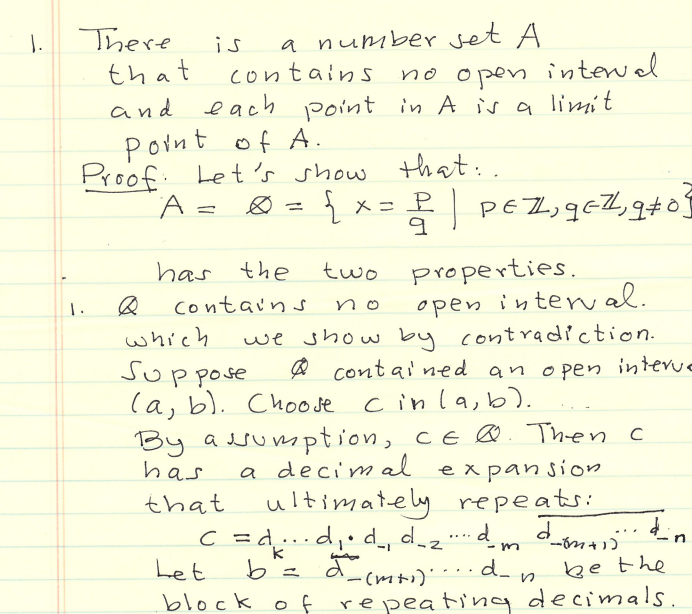 1. There is a number set A
that contains no open interval
and each point in A is a limit
point of A.
Proof: Let's show that:.
A = ℚ = { x = p/q | p∈ℤ, q∈ℤ, q≠0}
has the two properties.
1. ℚ contains no open interval.
which we show by contradiction.
Suppose ℚ contained an open interva
(a, b). Choose c in (a, b). ...
By assumption, c ∈ ℚ. Then c
has a decimal expansion
that ultimately repeats:
c = d_k ... d_1 . d_-1 d_-2 ... d_-m d_-(m+1) ... d_-n
Let b = d_-(m+1) .... d_-n be the
block of repeating decimals.